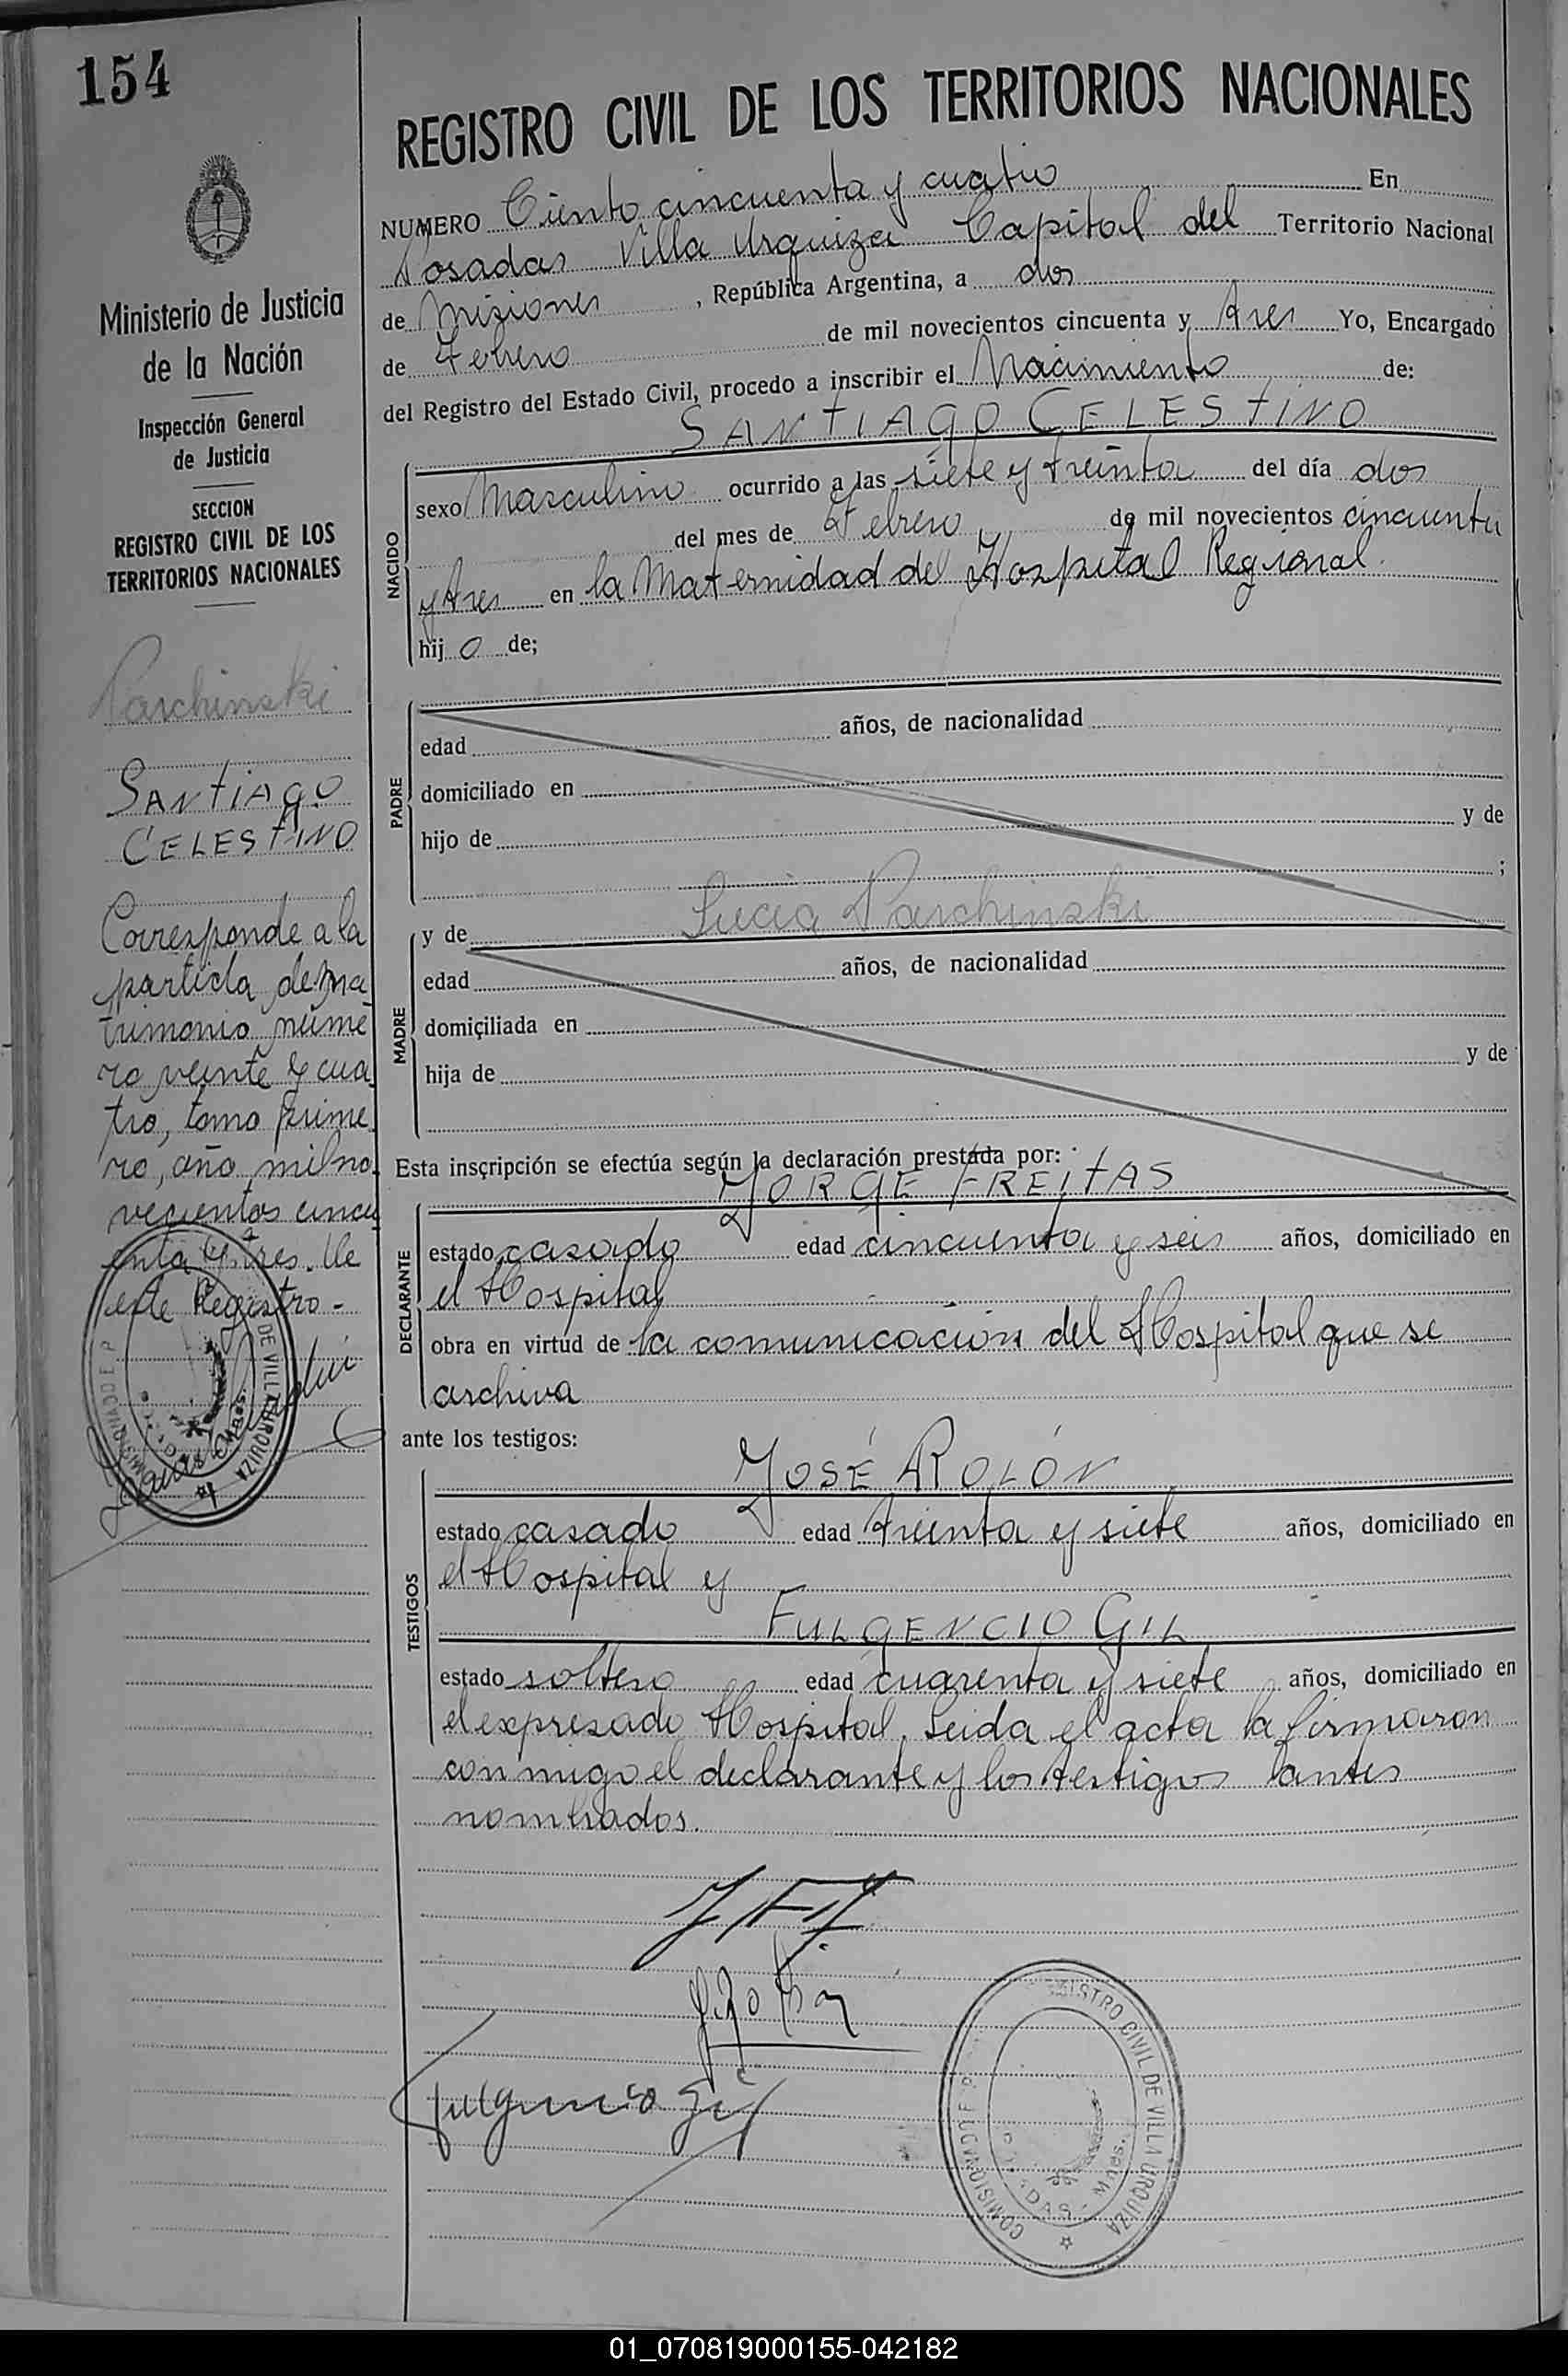 154
REGISTRO CIVIL DE LOS TERRITORIOS NACIONALES
NUMERO Ciento cincuenta y cuatro En
Posadas Villa Urquiza Capital del Territorio Nacional
de Misiones, República Argentina, a dos
de Febrero de mil novecientos cincuenta y tres Yo, Encargado
del Registro del Estado Civil, procedo a inscribir el Nacimiento de:
SANTIAGO CELESTINO
NACIDO
sexo Masculino ocurrido a las siete y treinta del día dos
del mes de Febrero de mil novecientos cincuenta
y tres en la Maternidad del Hospital Regional.
hijo de;
PADRE
edad años, de nacionalidad
domiciliado en
hijo de y de
;
y de Lucia Parchinski
MADRE
edad años, de nacionalidad
domiciliada en
hija de y de
Esta inscripción se efectúa según la declaración prestada por:
JORGE FREITAS
DECLARANTE
estado casado edad cincuenta y seis años, domiciliado en
el Hospital
obra en virtud de la comunicación del Hospital que se
archiva
ante los testigos:
JOSÉ ROLÓN
TESTIGOS
estado casado edad treinta y siete años, domiciliado en
el Hospital y
FULGENCIO GIL
estado soltero edad cuarenta y siete años, domiciliado en
el expresado Hospital. Leida el acta la firmaron
conmigo el declarante y los testigos antes
nombrados.
Fulgencio Gil
REGISTRO CIVIL DE VILLA URQUIZA
POSADAS - Mnes.
Ministerio de Justicia
de la Nación
Inspección General
de Justicia
SECCION
REGISTRO CIVIL DE LOS
TERRITORIOS NACIONALES
Parchinski
SANTIAGO
CELESTINO
Corresponde a la
partida de ma
trimonio núme
ro veinte y cua
tro, tomo prime
ro, año mil no
vecientos cincu
enta y tres. De
este Registro-
DE VILLA URQUIZA
Mnes.
01_070819000155-042182